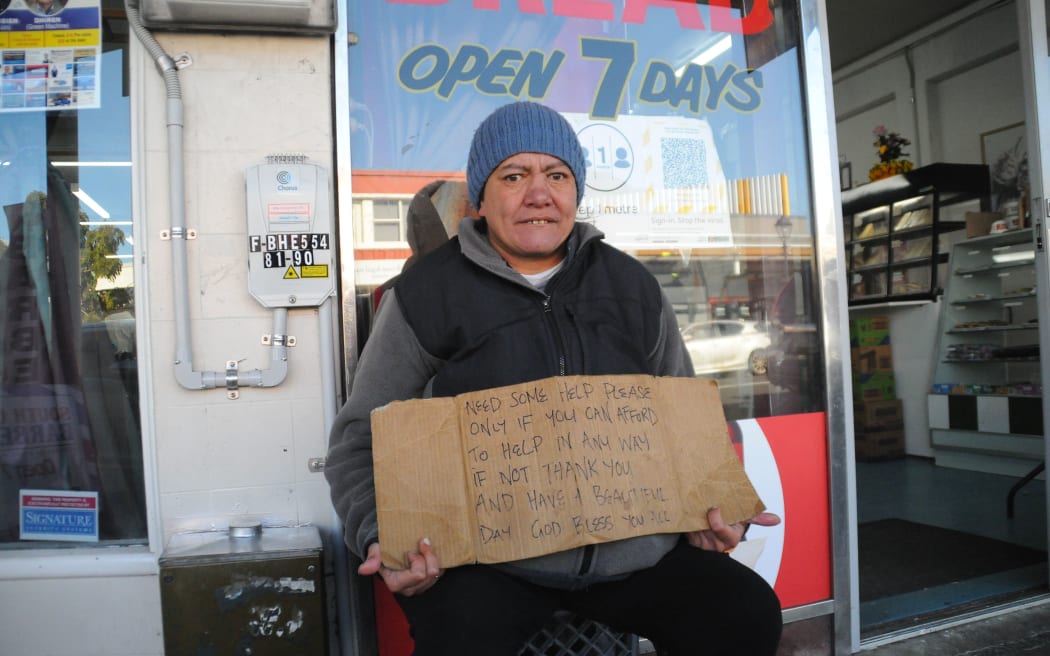 (Green Machine)
BREAD
OPEN 7 DAYS
Chorus
F-BHE554
81-90
1
metre
Sign-in. Stop the virus.
NEED SOME HELP PLEASE
ONLY IF YOU CAN AFFORD
TO HELP IN ANY WAY
IF NOT THANK YOU
AND HAVE A BEAUTIFUL
DAY GOD BLESS YOU ALL
SIGNATURE